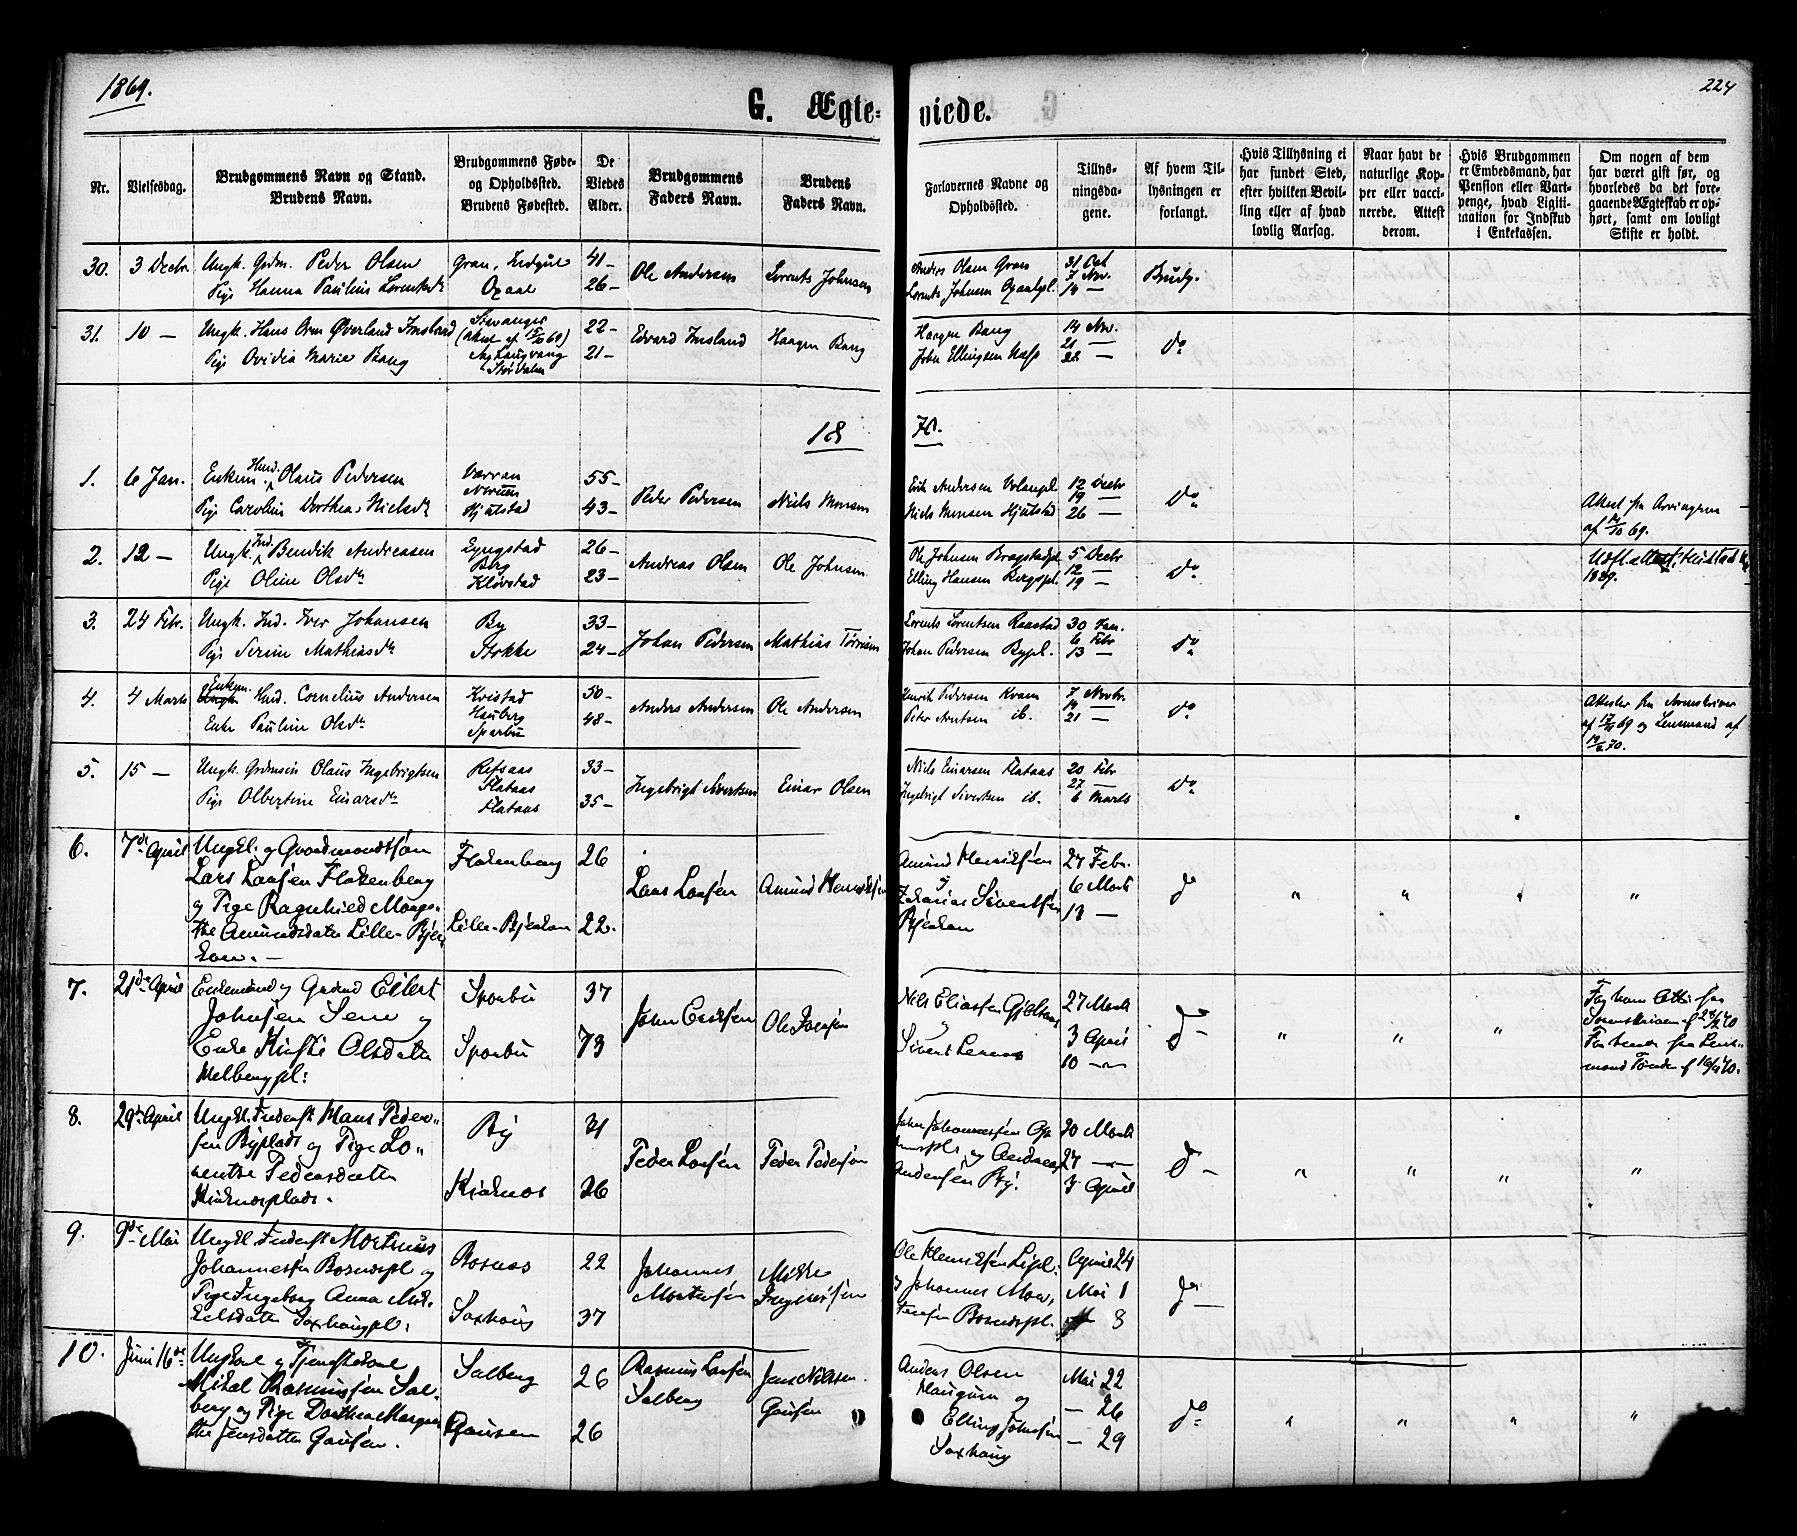 1869.
224
G. Ægte-
viede.
Nr.
Vielsesdag.
Brudgommens Navn og Stand.
Brudens Navn.
Brudgommens Føde-
og Opholdssted.
Brudens Fødested.
De
Viedes
Alder.
Brudgommens
Faders Navn.
Brudens
Faders Navn.
Forlovernes Navne og
Opholdssted.
Tillys-
ningsda-
gene.
Af hvem Til-
lysningen er
forlangt.
Hvis Tillysning ei
har fundet Sted,
efter hvilken Bevil-
ling eller af hvad
lovlig Aarsag.
Naar havt de
naturlige Kop-
per eller vacci-
nerede. Attest
derom.
Hvis Brudgommen
er Embedsmand, har
Pension eller Vart-
penge, hvad Ligiti-
mation for Indskud
i Enkekassen.
Om nogen af dem
har været gift før, og
hvorledes da det fore-
gaaende Ægteskab er op-
hørt, samt om lovligt
Skifte er holdt.
30.
3 Decbr
Ungk. Grdm. Peder Olsen
Pige Hanna Pauline Lorentsdr
Gran,
Opaal
41-
26-
Ole Andersen
Lorents Johnsen
Anders Olsen Gran
Lorents Johnsen Opaalpl.
31 Oct
7 Nov.
14 —
Brudg.
31.
10 —
Ungk. Hans Orm Øverland Imsland
Pige Ovidia Marie Bang
Stavanger
22-
21-
Edvard Imsland
Haagen Bang
Haagen Bang
John Ellingsen
14 Nov.
21 —
28 —
do
18
70.
1.
6 Jan.
Enkem. Husm. Olaus Pedersen
Pige Caroline Dorthea Nielsdr
Værran
Hjulstad
55-
43-
Peder Pedersen
Niels Monsen
Erik Andersen
Niels Monsen Hjulstad
12 Decbr
19 —
26 —
do
Attest fra
af 14/10 69.
2.
12 —
Ungk. Ind. Bendik Andreasen
Pige Oline Olsdr
Lyngstad
Berg
Kløvstad
26-
23-
Andreas Olsen
Ole Johnsen
Ole Johnsen
Elling Hansen Bergspl.
5 Decbr
12 —
19 —
do
1889.
3.
24 Febr.
Ungk. Ind. Iver Johansen
Pige Serine Mathiasdr
By
Stokke
33-
24-
Johan Pedersen
Mathias
Lorents Lorentsen
Johan Pedersen Bypl.
30 Jan.
6 Febr
13 —
do
4.
4 Marts
Enkem. Husm. Cornelius Andersen
Enke Pauline Olsdr
Kvistad
Hauberg
Sparbu
50-
48-
Anders Andersen
Ole Andersen
Henrik Pedersen Kvam
Peter Arntsen ib.
7 Novbr.
14
21 —
do
Attester fra Sorenskriver
og Lensmand af
5.
15 —
Ungk. Grdmsøn Olaus Ingebrigtsen
Pige Olbertine Einarsdr
Refsaas
Flataas
Flataas
33-
35-
Ingebrigt Sivertsen
Einar Olsen
Niels Einarsen Flataas
Ingebrigt Sivertsen ib.
20 Febr
27 —
6 Marts
do
6.
7de April
Ungkl. og Gaardmandssøn
Lars Larsen Flakenberg
og Pige Ragnhild Marga-
the Amundsdatter Lille-Bjer-
kan. —
Flakenberg
Lille-Bjerkan
26
22.
Lars Larsen
Amund Henriksen
Amund Henriksen
Zakarias Sivertsen
Bjerkan
27 Febr.
6 Marts
13 —
do
"
"
"
"
7.
21de April
Enkemand og Grdmd Eilert
Johnsen Sem og
Enke Kirstie Olsdatter
Melbergpl:
Sparbu
Sparbu
37
73
John Ericksen
Ole Joensen
Nils Eliassen
Sivert
27 Marts
3 April
10 —
do —
"
"
"
For ham Attest fra
Sorenskriveren af
For hende fra Lens-
mand Tønder af 10/4 70.
8.
29de April
Ungkl. Inderst Hans Peder-
sen Byplads og Pige Lo-
rentse Pedersdatter
Kirknesplads.
By
Kirknes
31
26
Peder Larsen
Peder Pedersen
John Johannessen
og Andreas
Andersen By.
20 Marts
27 —
3 April
do —
"
"
"
"
9.
9de Mai
Ungkl. Inderst Martinus
Johannessen Bornespl og
Pige Ingeborg Anna Mik-
kelsdatter Saxhaugpl:
Bornes
Saxhaug
22
37
Johannes
Mortensen
Mikkel
Ole Henriksen
Johannes
Bornespl.
April 24
Mai 1
8
do —
10.
Juni 16de
Ungkarl og Tjenestekarl
Mikal Rasmussen Sal-
berg og Pige Dorthea Margre-
the Jensdatter Gausen.
Salberg
Gausen
26
26
Rasmus Larsen
Salberg
Jens Nilssen
Gausen
Anders Olsen
Haugum og
Elling Johnsen
Saxhaug
Mai 22
— 26
— 29
do
"
"
"
"